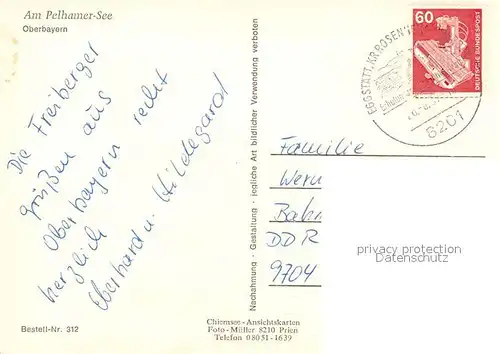 Am Pelhamer-See
Oberbayern
Die Freiberger
grüßen aus
Oberbayern recht
herzlich
Eberhard u. Hildegard
Bestell-Nr. 312
Nachahmung - Gestaltung - jegliche Art bildlicher Verwendung verboten
Chiemsee-Ansichtskarten
Foto-Müller 8210 Prien
Telefon 08051-1639
60
DEUTSCHE BUNDESPOST
EGGSTÄTT, KR. ROSENH
8201
Familie
Wern
Bahn
DDR
9704
privacy protection
Datenschutz